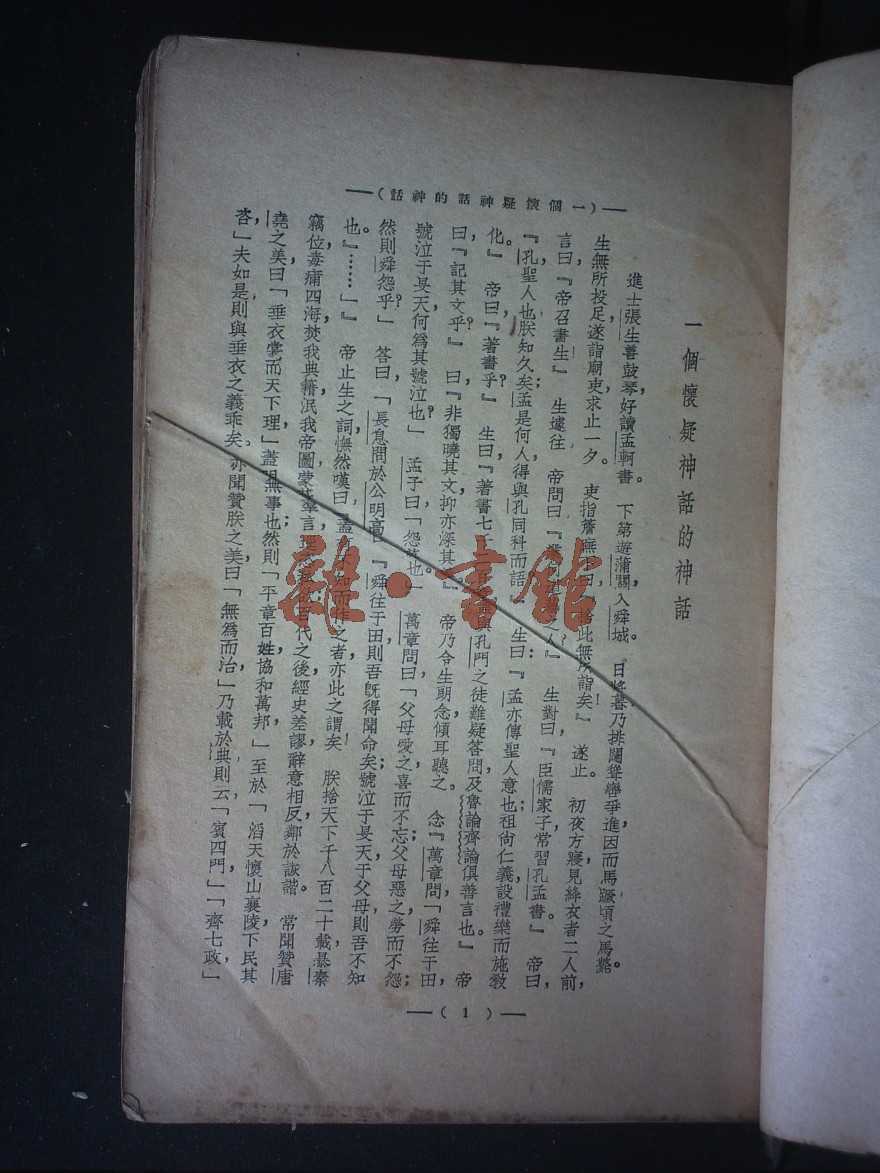 一個懷疑神話的神話
進士張生善鼓琴,好讀孟軻書。下第遊蒲關,入舜城。日將暮,乃排闥聳轡爭進,因而馬蹶。頃之馬斃。
生無所投足,遂詣廟吏,求止一夕。吏指簷廡曰,『此無所詣矣!』遂止。初夜方寢,見絳衣者二人,前
言曰,『帝召書生!』生遽往。帝問曰,『之人?』生對曰,『臣儒家子,常習孔孟書。』帝曰,
『孔聖人也,朕知久矣;孟是何人,得與孔同科而語?』生曰:『孟亦傳聖人意也;祖尚仁義,設禮樂而施敎
化。』帝曰,『著書乎?』生曰,『著書七千與孔門之徒難疑答問,及魯論齊論,俱善言也。』帝
曰,『記其文乎?』曰,『非獨曉其文,抑亦深其。』帝乃令生朗念,傾耳聽之。念『萬章問,「舜往于田,
號泣于旻天,何爲其號泣也?」孟子曰,「怨慕也。」萬章問曰,「父母愛之,喜而不忘;父母惡之,勞而不怨;
然則舜怨乎?」答曰,「長息問於公明高曰,『舜往于田,則吾旣得聞命矣;號泣于旻天,于父母,則吾不知
也。』……」』帝止生之詞,憮然嘆曰,『蓋有不知而作之者,亦此之謂矣!朕捨天下千八百二十載,暴秦
竊位,毒痡四海,焚我典籍,泯我帝圖,蒙羣言,百代之後,經史差謬,辭意相反,鄰於詼諧。常聞贊唐
堯之美曰,「垂衣裳而天下理」,蓋明無事也;然則「平章百姓,協和萬邦,」至於「滔天懷山襄陵,下民其
咨,」夫如是,則與垂衣之義乖矣。亦聞贊朕之美曰,「無爲而治,」乃載於典則云,「賓四門,」「齊七政,」
——(一個懷疑神話的神話)——
——( 1 )——
雜·書館